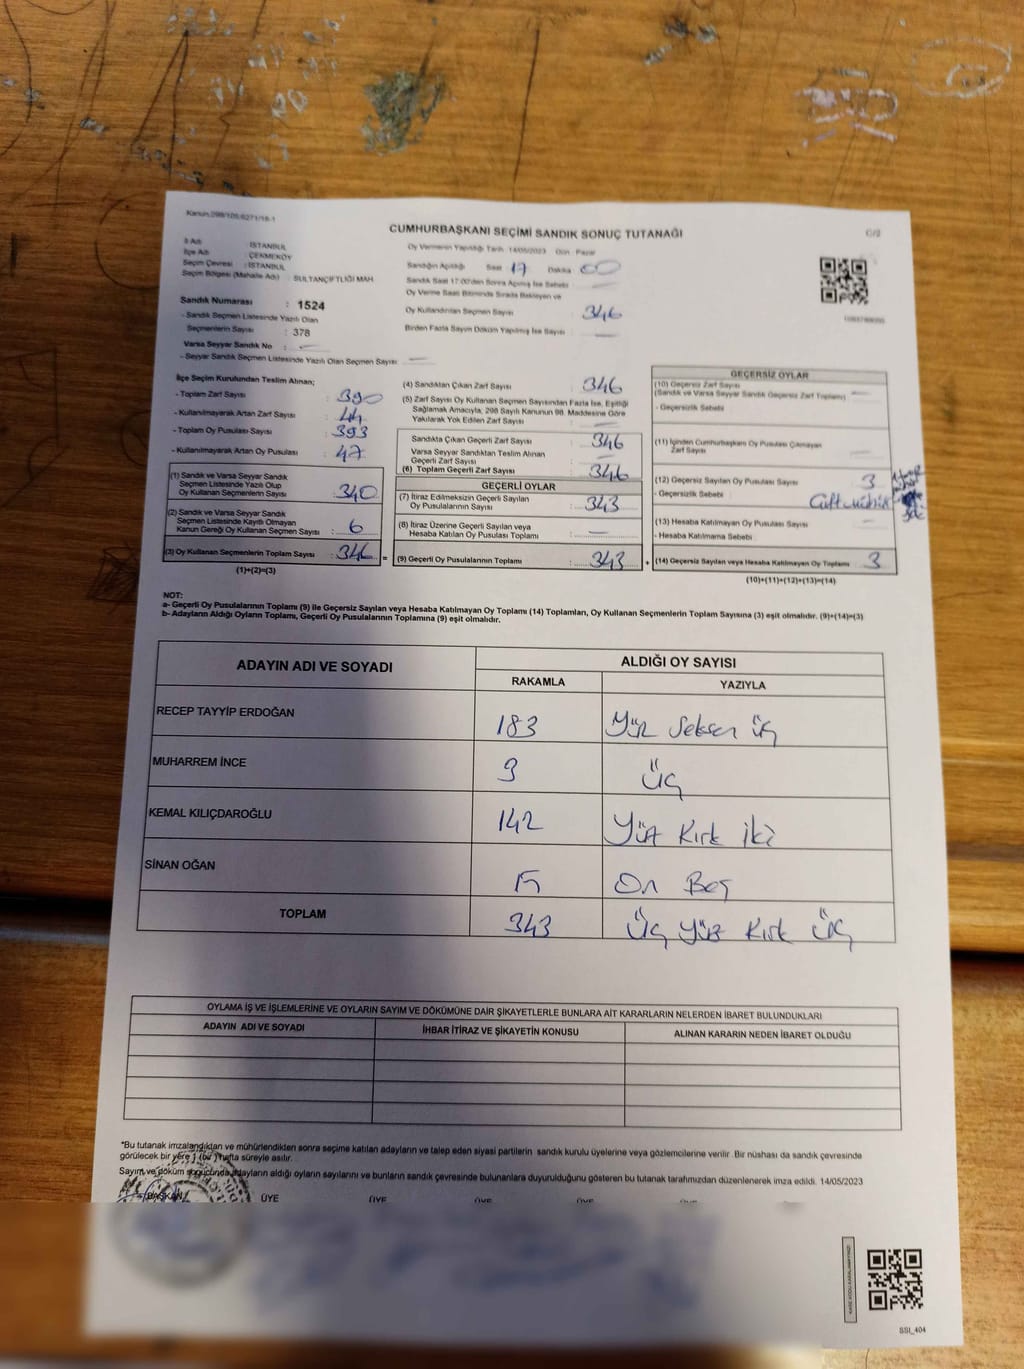 Kanun:298/105,6271/16-1
CUMHURBAŞKANI SEÇİMİ SANDIK SONUÇ TUTANAĞI
C/2
İl Adı : İSTANBUL
İlçe Adı : ÇEKMEKÖY
Seçim Çevresi : İSTANBUL
Seçim Bölgesi (Mahalle Adı) : SULTANÇİFTLİĞİ MAH.
Oy Vermenin Yapıldığı Tarih: 14/05/2023 Gün: Pazar
Sandığın Açıldığı Saat 17 Dakika 00
Sandık Saat 17:00'den Sonra Açılmış İse Sebebi : —
Oy Verme Saati Bitiminde Sırada Bekleyen ve
Oy Kullandırılan Seçmen Sayısı : 346
Birden Fazla Sayım Döküm Yapılmış İse Sayısı : —
Sandık Numarası : 1524
- Sandık Seçmen Listesinde Yazılı Olan
Seçmenlerin Sayısı : 378
Varsa Seyyar Sandık No : —
- Seyyar Sandık Seçmen Listesinde Yazılı Olan Seçmen Sayısı : —
İlçe Seçim Kurulundan Teslim Alınan;
- Toplam Zarf Sayısı : 390
- Kullanılmayarak Artan Zarf Sayısı : 44
- Toplam Oy Pusulası Sayısı : 393
- Kullanılmayarak Artan Oy Pusulası : 47
(1) Sandık ve Varsa Seyyar Sandık
Seçmen Listesinde Yazılı Olup
Oy Kullanan Seçmenlerin Sayısı : 340
(2) Sandık ve Varsa Seyyar Sandık
Seçmen Listesinde Kayıtlı Olmayan
Kanun Gereği Oy Kullanan Seçmen Sayısı : 6
(3) Oy Kullanan Seçmenlerin Toplam Sayısı : 346
(1)+(2)=(3)
(4) Sandıktan Çıkan Zarf Sayısı : 346
(5) Zarf Sayısı Oy Kullanan Seçmen Sayısından Fazla İse, Eşitliği
Sağlamak Amacıyla, 298 Sayılı Kanunun 98. Maddesine Göre
Yakılarak Yok Edilen Zarf Sayısı : —
Sandıkta Çıkan Geçerli Zarf Sayısı : 346
Varsa Seyyar Sandıktan Teslim Alınan
Geçerli Zarf Sayısı : —
(6) Toplam Geçerli Zarf Sayısı : 346
GEÇERLİ OYLAR
(7) İtiraz Edilmeksizin Geçerli Sayılan
Oy Pusulalarının Sayısı : 343
(8) İtiraz Üzerine Geçerli Sayılan veya
Hesaba Katılan Oy Pusulası Toplamı : —
= (9) Geçerli Oy Pusulalarının Toplamı : 343
GEÇERSİZ OYLAR
(10) Geçersiz Zarf Sayısı
(Sandık ve Varsa Seyyar Sandık Geçersiz Zarf Toplamı) : —
- Geçersizlik Sebebi :
(11) İçinden Cumhurbaşkanı Oy Pusulası Çıkmayan
Zarf Sayısı : —
(12) Geçersiz Sayılan Oy Pusulası Sayısı : 3
- Geçersizlik Sebebi : Çift mühür
(13) Hesaba Katılmayan Oy Pusulası Sayısı : —
- Hesaba Katılmama Sebebi :
+ (14) Geçersiz Sayılan veya Hesaba Katılmayan Oy Toplamı : 3
(10)+(11)+(12)+(13)=(14)
NOT:
a- Geçerli Oy Pusulalarının Toplamı (9) ile Geçersiz Sayılan veya Hesaba Katılmayan Oy Toplamı (14) Toplamları, Oy Kullanan Seçmenlerin Toplam Sayısına (3) eşit olmalıdır. (9)+(14)=(3)
b- Adayların Aldığı Oyların Toplamı, Geçerli Oy Pusulalarının Toplamına (9) eşit olmalıdır.
ADAYIN ADI VE SOYADI ALDIĞI OY SAYISI
RAKAMLA YAZIYLA
RECEP TAYYİP ERDOĞAN 183 Yüz Seksen üç
MUHARREM İNCE 3 Üç
KEMAL KILIÇDAROĞLU 142 Yüz Kırk İki
SİNAN OĞAN 15 On Beş
TOPLAM 343 Üç Yüz Kırk Üç
OYLAMA İŞ VE İŞLEMLERİNE VE OYLARIN SAYIM VE DÖKÜMÜNE DAİR ŞİKAYETLERLE BUNLARA AİT KARARLARIN NELERDEN İBARET BULUNDUKLARI
ADAYIN ADI VE SOYADI İHBAR İTİRAZ VE ŞİKAYETİN KONUSU ALINAN KARARIN NEDEN İBARET OLDUĞU
*Bu tutanak imzalandıktan ve mühürlendikten sonra seçime katılan adayların ve talep eden siyasi partilerin sandık kurulu üyelerine veya gözlemcilerine verilir. Bir nüshası da sandık çevresinde
görülecek bir yere 1 (bir) hafta süreyle asılır.
Sayım ve döküm sonucunda adayların aldığı oyların sayılarını ve bunların sandık çevresinde bulunanlara duyurulduğunu gösteren bu tutanak tarafımızdan düzenlenerek imza edildi. 14/05/2023
BAŞKAN ÜYE ÜYE ÜYE ÜYE ÜYE
SSI_404